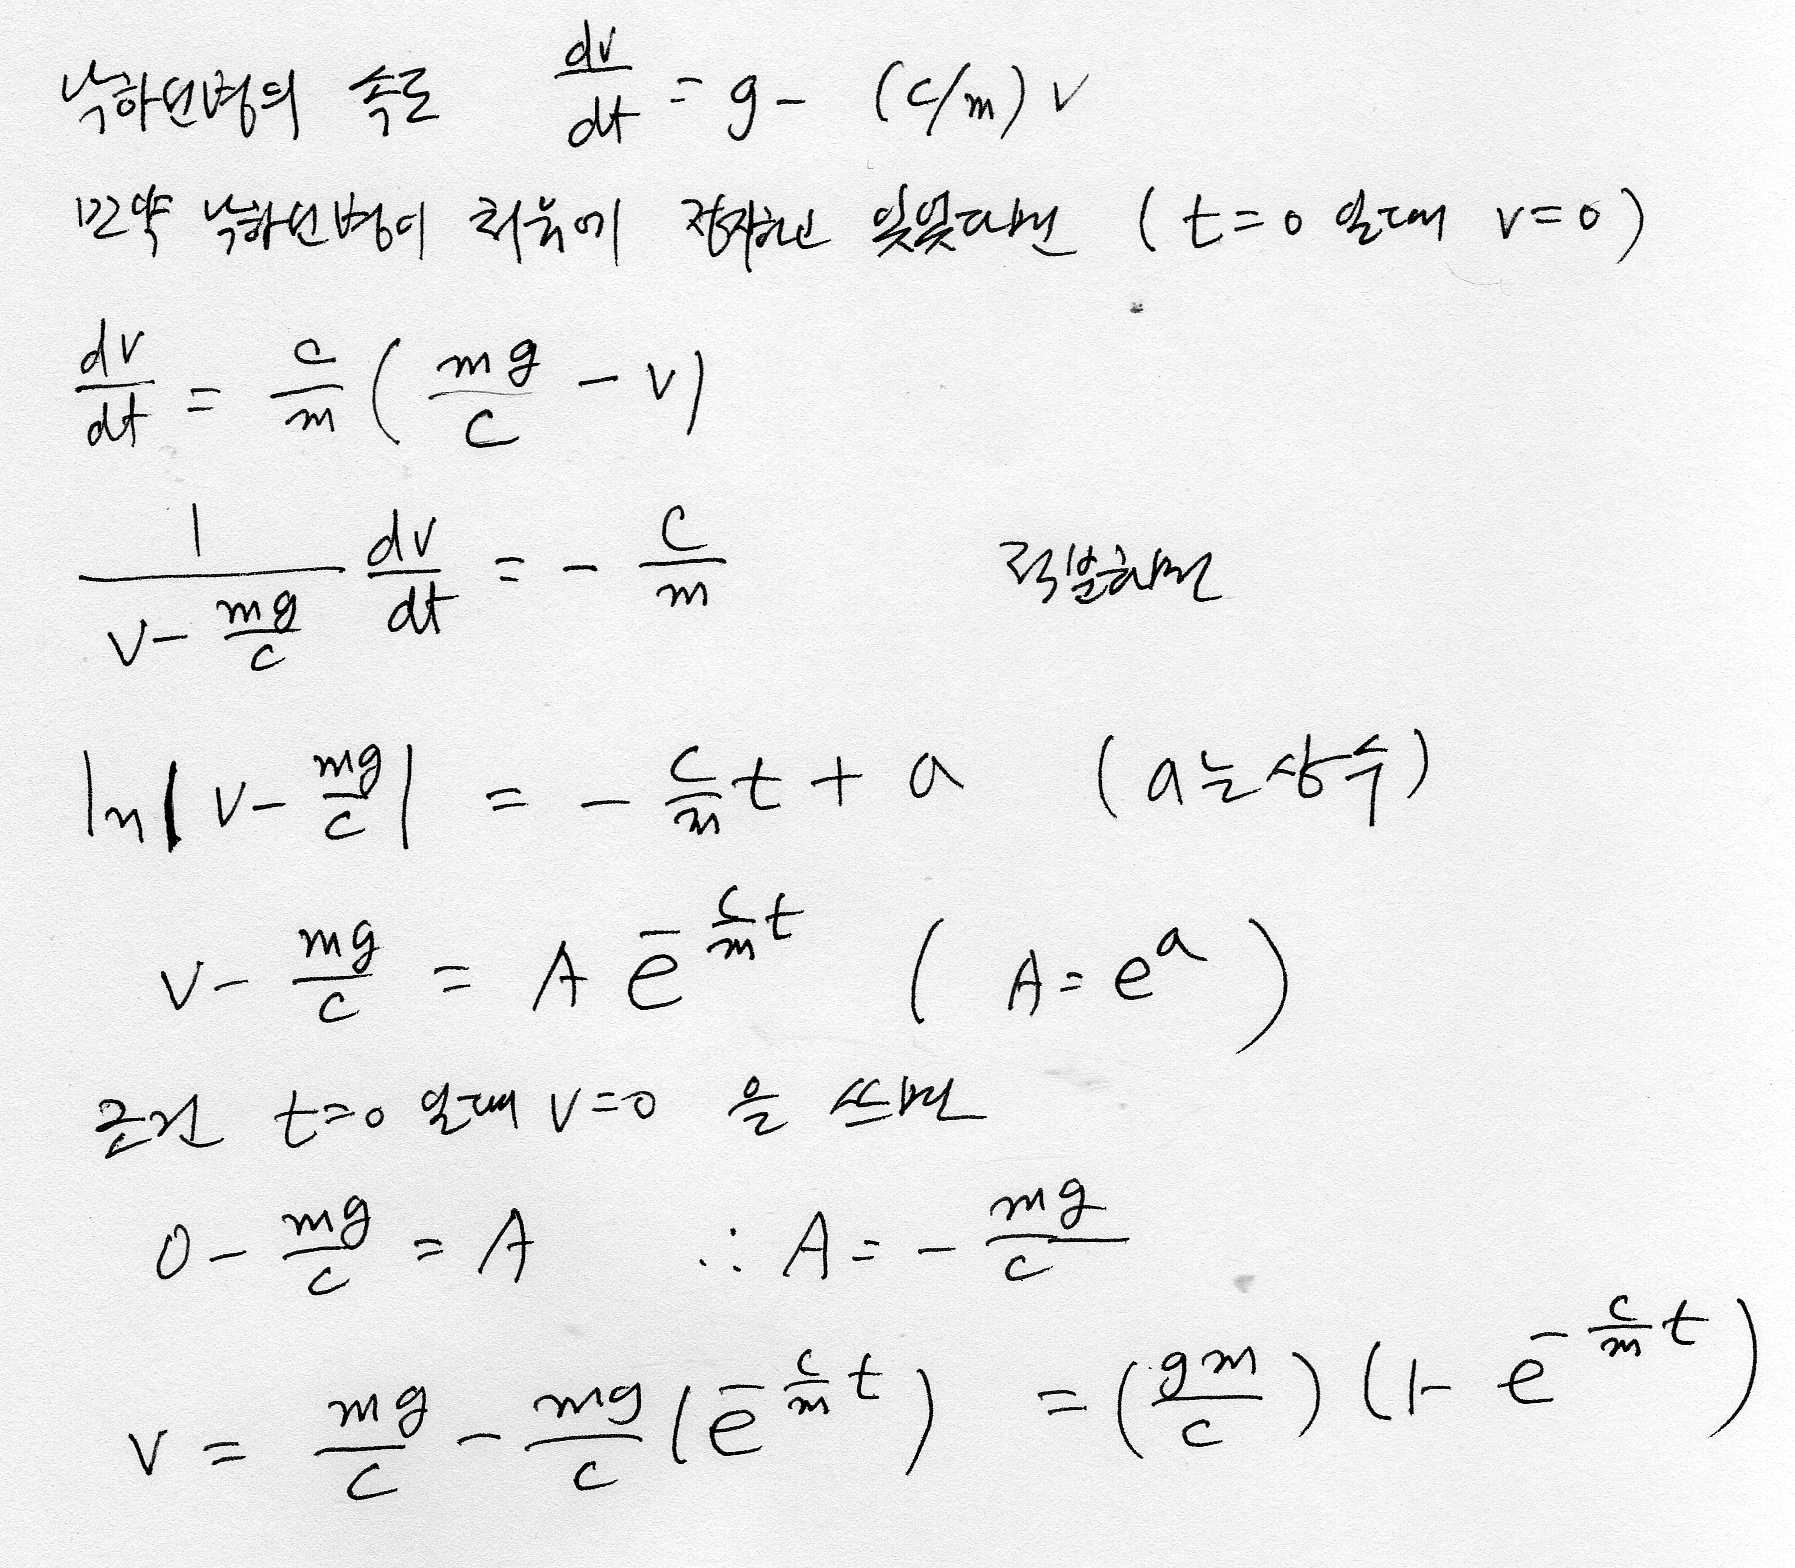 낙하산병의 속도 dv/dt = g - (c/m) v
만약 낙하산병이 처음에 정지하고 있었다면 (t=0 일때 v=0)
dv/dt = c/m ( mg/c - v)
1/(v - mg/c) dv/dt = - c/m 적분하면
ln|v - mg/c| = - c/m t + a (a는 상수)
v - mg/c = A e^(- c/m t) ( A = e^a )
조건 t=0 일때 v=0 을 쓰면
0 - mg/c = A ∴ A = - mg/c
v = mg/c - mg/c (e^(- c/m t)) = (gm/c) (1 - e^(- c/m t))